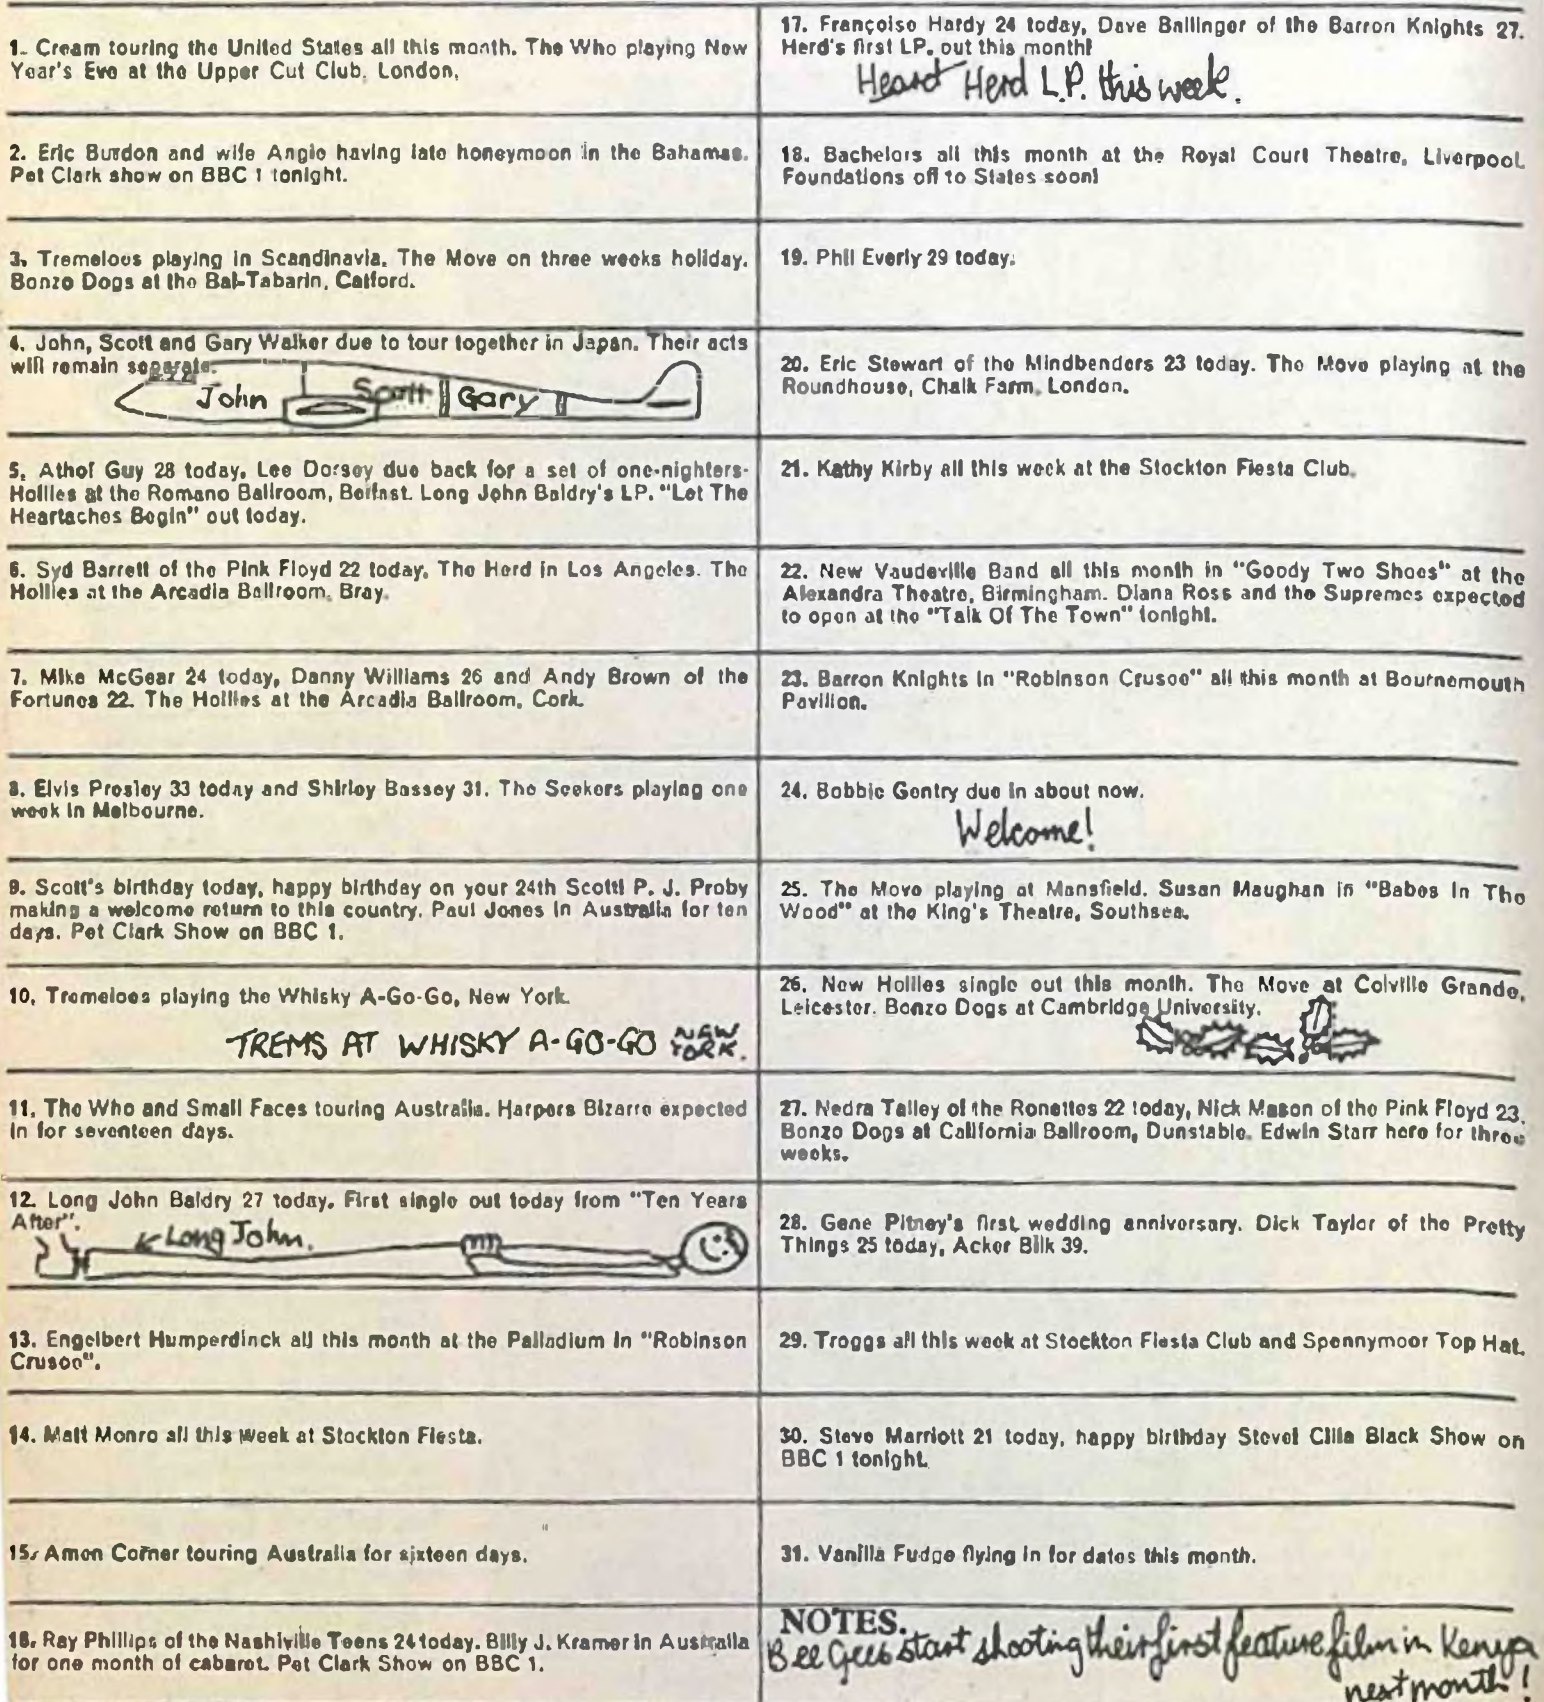 1. Cream touring the United States all this month. The Who playing New
Year's Eve at the Upper Cut Club, London.
2. Eric Burdon and wife Angie having late honeymoon in the Bahamas.
Pet Clark show on BBC 1 tonight.
3. Tremeloes playing in Scandinavia. The Move on three weeks holiday.
Bonzo Dogs at the Bal-Tabarin, Catford.
4. John, Scott and Gary Walker due to tour together in Japan. Their acts
will remain separate.
John Scott Gary
5. Athol Guy 28 today, Lee Dorsey due back for a set of one-nighters-
Hollies at the Romano Ballroom, Belfast. Long John Baldry's LP. "Let The
Heartaches Begin" out today.
6. Syd Barrett of the Pink Floyd 22 today. The Herd in Los Angeles. The
Hollies at the Arcadia Ballroom, Bray.
7. Mike McGear 24 today, Danny Williams 26 and Andy Brown of the
Fortunes 22. The Hollies at the Arcadia Ballroom, Cork.
8. Elvis Presley 33 today and Shirley Bassey 31. The Seekers playing one
week in Melbourne.
9. Scott's birthday today, happy birthday on your 24th Scott! P. J. Proby
making a welcome return to this country. Paul Jones in Australia for ten
days. Pet Clark Show on BBC 1.
10. Tremeloes playing the Whisky A-Go-Go, New York.
TREMS AT WHISKY A-GO-GO NEW
YORK.
11. The Who and Small Faces touring Australia. Harpers Bizarre expected
in for seventeen days.
12. Long John Baldry 27 today. First single out today from "Ten Years
After".
Long John.
13. Engelbert Humperdinck all this month at the Palladium in "Robinson
Crusoe".
14. Matt Monro all this week at Stockton Fiesta.
15. Amen Corner touring Australia for sixteen days.
16. Ray Phillips of the Nashiville Teens 24 today. Billy J. Kramer in Australia
for one month of cabaret. Pet Clark Show on BBC 1.
17. Françoise Hardy 24 today, Dave Ballinger of the Barron Knights 27.
Herd's first LP. out this month!
Heard Herd L.P. this week.
18. Bachelors all this month at the Royal Court Theatre, Liverpool.
Foundations off to States soon!
19. Phil Everly 29 today.
20. Eric Stewart of the Mindbenders 23 today. The Move playing at the
Roundhouse, Chalk Farm, London.
21. Kathy Kirby all this week at the Stockton Fiesta Club.
22. New Vaudeville Band all this month in "Goody Two Shoes" at the
Alexandra Theatre, Birmingham. Diana Ross and the Supremes expected
to open at the "Talk Of The Town" tonight.
23. Barron Knights in "Robinson Crusoe" all this month at Bournemouth
Pavilion.
24. Bobbie Gentry due in about now.
Welcome!
25. The Move playing at Mansfield. Susan Maughan in "Babes In The
Wood" at the King's Theatre, Southsea.
26. New Hollies single out this month. The Move at Colville Grande,
Leicester. Bonzo Dogs at Cambridge University.
27. Nedra Talley of the Ronettes 22 today, Nick Mason of the Pink Floyd 23.
Bonzo Dogs at California Ballroom, Dunstable. Edwin Starr here for three
weeks.
28. Gene Pitney's first wedding anniversary. Dick Taylor of the Pretty
Things 25 today, Acker Bilk 39.
29. Troggs all this week at Stockton Fiesta Club and Spennymoor Top Hat.
30. Steve Marriott 21 today, happy birthday Steve! Cilla Black Show on
BBC 1 tonight.
31. Vanilla Fudge flying in for dates this month.
NOTES.
Bee Gees start shooting their first feature film in Kenya
next month!